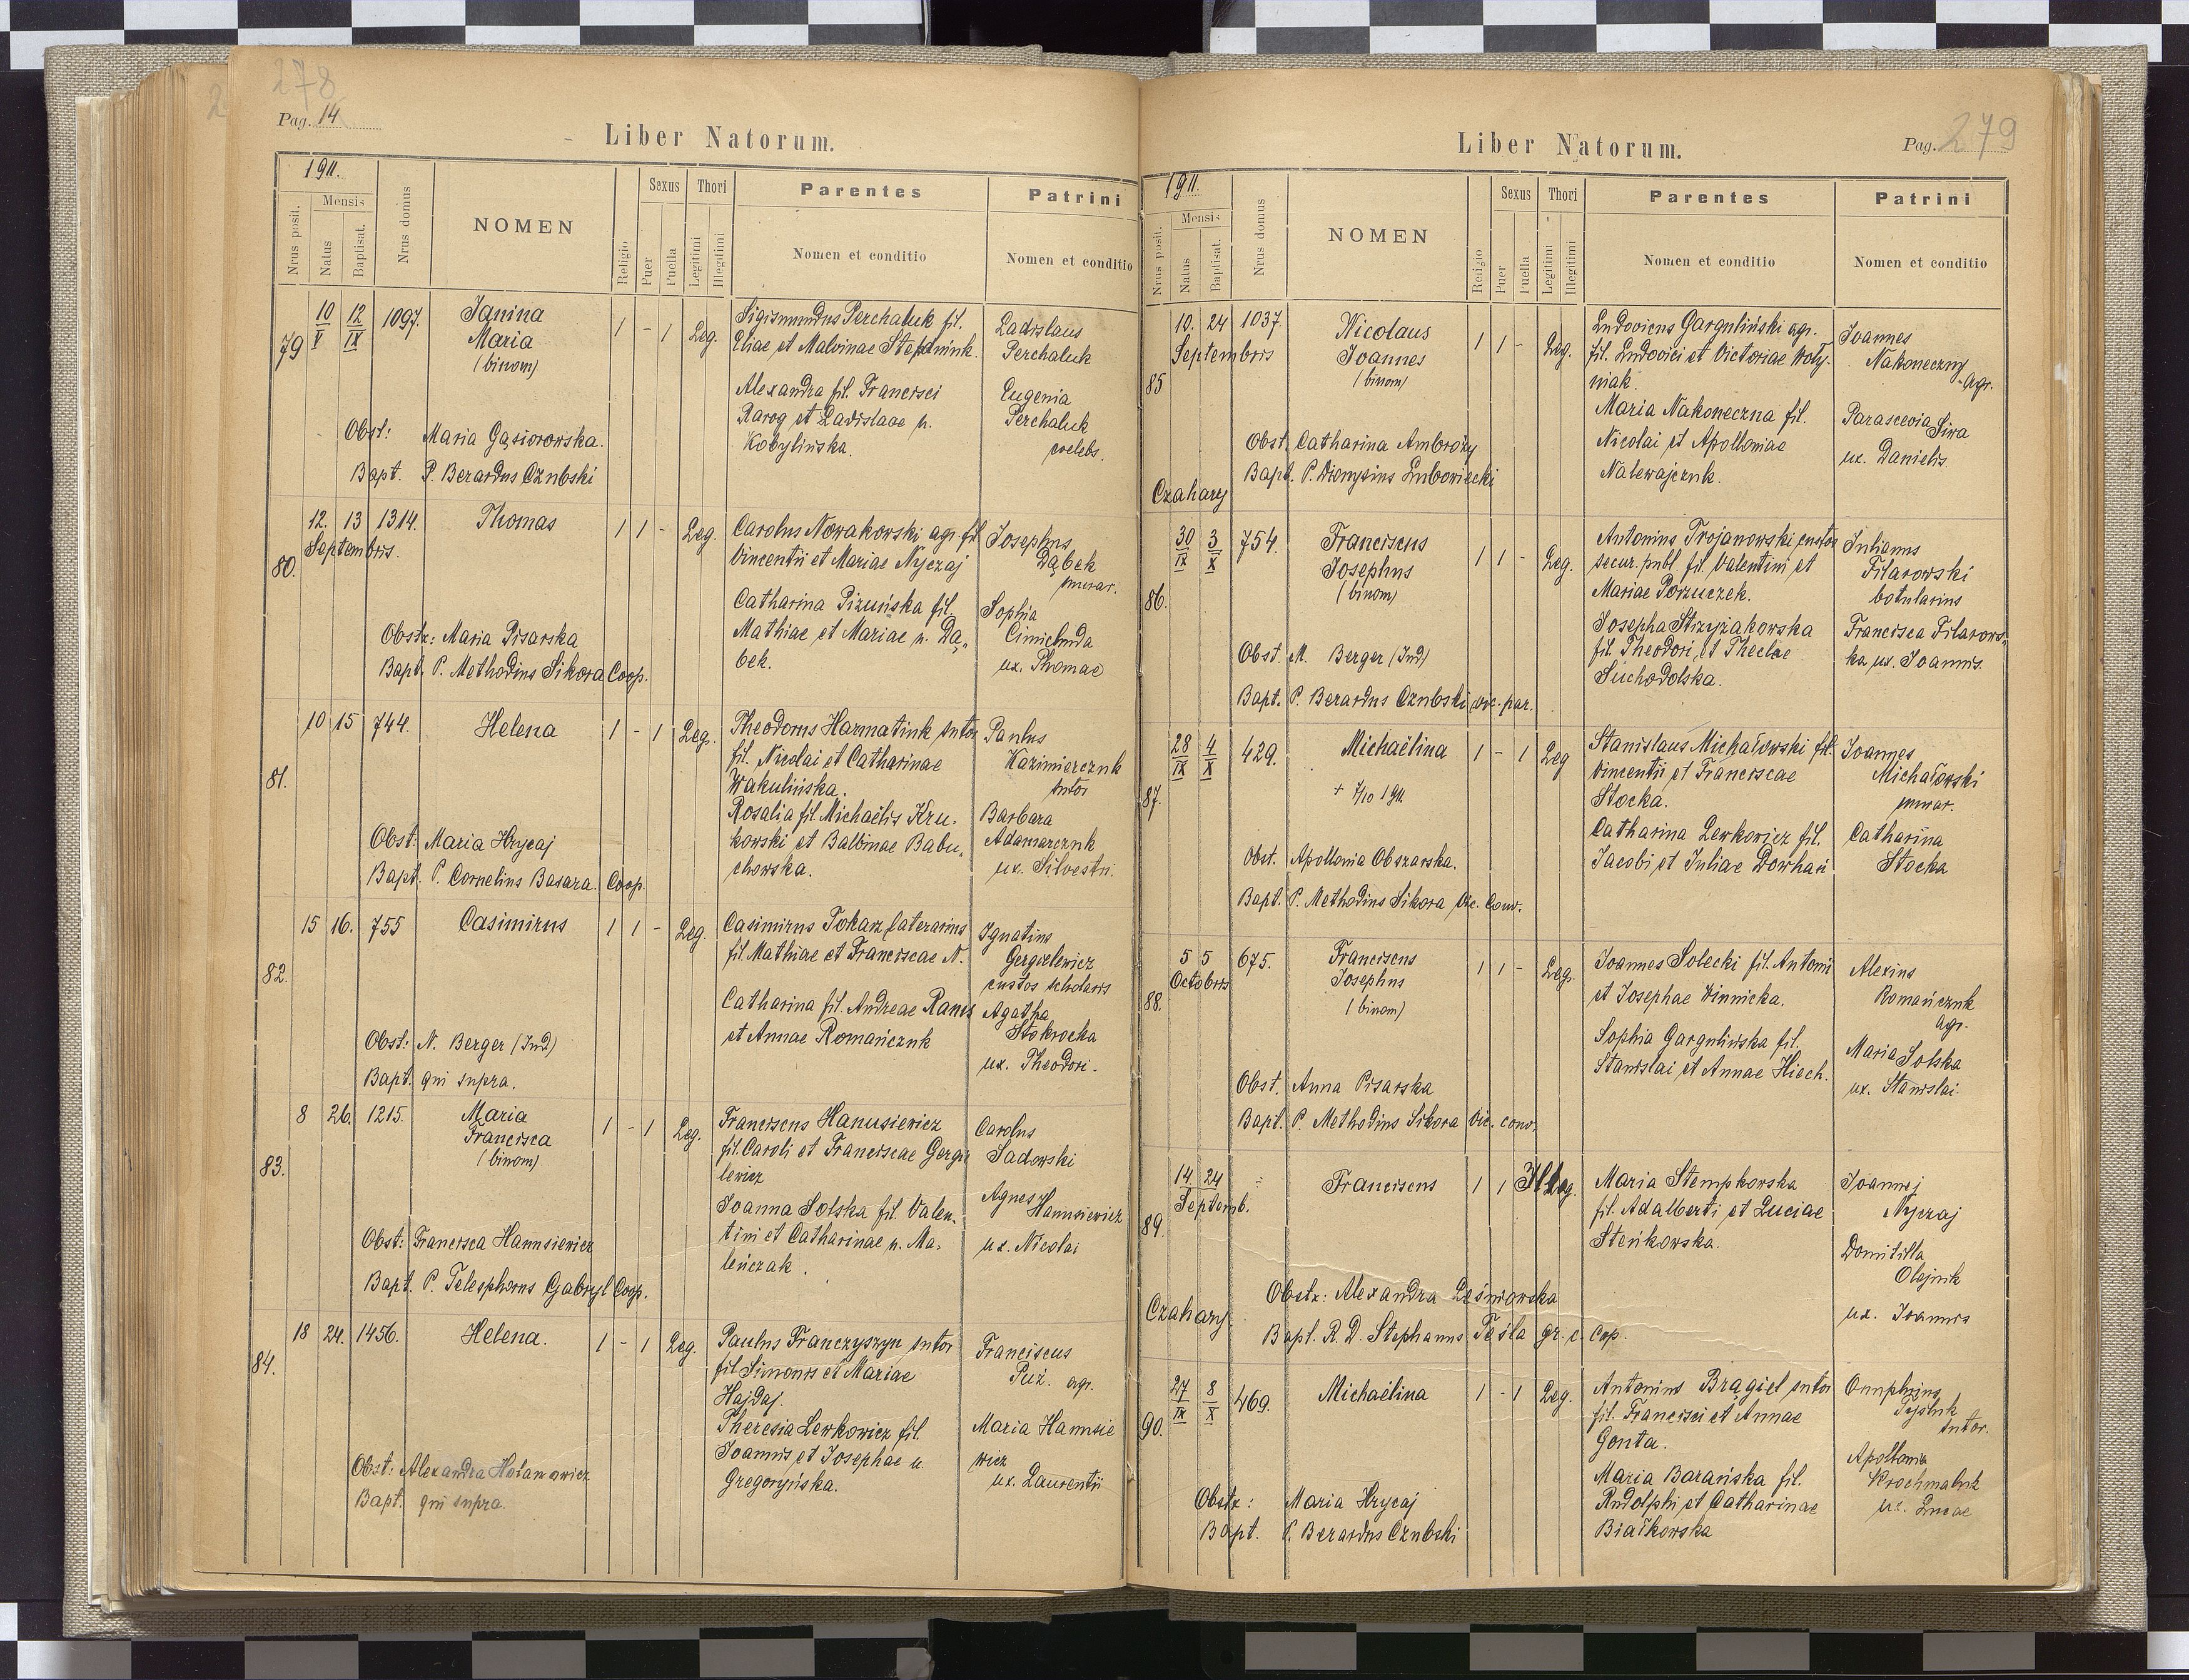 278
Pag. 14
Liber Natorum.
1911.
Nrus posit.
Mensis
Natus
Baptisat.
Nrus domus
NOMEN
Religio
Sexus
Puer
Puella
Thori
Legitimi
Illegitimi
Parentes
Nomen et conditio
Patrini
Nomen et conditio
79
10/V 12/IX 1097. Janina 1 - 1 Leg.
Maria
(binom)
Sigismundus Perchaluk fil.
Eliae et Malvinae
Alexandra fil. Francisci
Rarog et Ladislaae n.
Kobylińska.
Ladislaus
Perchaluk
Eugenia
Perchaluk
coelebs.
Obst: Maria Gąsiorowska.
Bapt. P. Berardus Czubski
80.
12. 13 1314. Thomas 1 1 - Leg.
Septembris.
Carolus Nowakowski agr. fil
Vincentii et Mariae Nyczaj
Catharina Pizuńska fil.
Mathiae et Mariae n. Da„
bek.
Josephus
Dąbek
murar.
Sophia
Cimichuda
ux. Thomae
Obstx: Maria Pisarska
Bapt. P. Methodius Sikora Coop.
81.
10 15 744. Helena 1 - 1 Leg.
Theodorus Harmatiuk sutor
fil. Nicolai et Catharinae
Wakulińska.
Rosalia fil. Michaëlis Kru-
kowski et Balbinae Babu„
chowska.
Paulus
Kazimierczuk
sutor
Barbara
Adamarczuk
ux. Silvestri.
Obst: Maria Hrycaj
Bapt. P. Cornelius Basara. Coop
82.
15 16. 755 Casimirus 1 1 - Leg.
Casimirus Tokarz laterarius
fil. Mathiae et Franciscae N.
Catharina fil. Andreae Ranis
et Annae Romańczuk
Ignatius
Gergielewicz
custos scholaris
Agatha
Stokrocka
ux. Theodori.
Obst: N. Berger (Ind)
Bapt. qui supra.
83.
8 26. 1215. Maria 1 - 1 Leg.
Francisca
(binom)
Franciscus Hanusiewicz
fil. Caroli et Franciscae Gergie
lewicz
Joanna Solska fil. Valen„
tini et Catharinae n. Ma„
leńczak.
Carolus
Sadowski
Agnes
Hanusiewicz
ux. Nicolai
Obst: Francisca Hanusiewicz
Bapt. P. Telesphorus Gabryl Coop.
84.
18 24. 1456. Helena. 1 - 1 Leg.
Paulus Franczyszyn sutor
fil. Simonis et Mariae
Hajdaj.
Theresia Lewkowicz fil.
Joannis et Josephae n.
Gregoryńska.
Franciscus
Puż. agr.
Maria Hanusie
wicz
ux. Laurentii
Obst: Alexandra Hołanowicz
Bapt. qui supra
Liber Natorum.
Pag. 279
1911.
Nrus posit.
Mensis
Natus
Baptisat.
Nrus domus
NOMEN
Religio
Sexus
Puer
Puella
Thori
Legitimi
Illegitimi
Parentes
Nomen et conditio
Patrini
Nomen et conditio
85
10. 24 1037. Nicolaus 1 1 - Leg.
Septembris
Joannes
(binom)
Ludovicus Garguliński agr.
fil. Ludovici et Victoriae Woły-
niak.
Maria Nakoneczna fil.
Nicolai et Apolloniae
Nalewajczuk.
Joannes
Nakoneczny
agr.
Parascevia
Siwa
ux. Danielis.
Obst. Catharina Ambroży
Bapt. P. Dionysius Lubowiecki
Czahary
86.
30/IX 3/X 754. Franciscus 1 1 - Leg.
Josephus
(binom)
Antonius Trojanowski custos
secur. publ. fil. Valentini et
Mariae Porzuczek.
Josepha Strzyżakowska
fil. Theodori et Theclae
Suchodolska.
Julianus
Filarowski
botularius
Francisca Filarows„
ka ux. Joannis.
Obst. M. Berger (Ind)
Bapt. P. Berardus Czubski vic. par.
87.
28/IX 4/X 429. Michaëlina 1 - 1 Leg
+ 7/10 1911.
Stanislaus Michałowski fil.
Vincentii et Franciscae
Stocka.
Catharina Lewkowicz fil.
Jacobi et Juliae Dowhań
Joannes
Michałowski
murar.
Catharina
Stocka
Obst. Apollonia Obszarska.
Bapt. P. Methodius Sikora Vic. Conv.
88.
5 5 675. Franciscus 1 1 - Leg.
Octobris
Josephus
(binom)
Joannes Solecki fil. Antoni
et Josephae Winnicka.
Sophia Gargulińska fil.
Stanislai et Annae Hiech.
Alexius
Romańczuk
agr.
Maria Solska
ux. Stanislai.
Obst. Anna Pisarska
Bapt. P. Methodius Sikora Vic. conv.
89.
14 24 Franciscus 1 1 Illeg.
Septemb.
Maria Stempkowska
fil. Adalberti et Luciae
Steńkowska.
Joannes
Nyczaj
Domitilla
Olejnik
ux. Joannis
Obstx: Alexandra Leśniowska
Czahary
Bapt. R. D. Stephanus Tesla gr. c. Cop.
90.
27/IX 8/X 469. Michaëlina 1 - 1 Leg.
Antonius Brągiel sutor
fil. Francisci et Annae
Gonta.
Maria Barańska fil.
Rudolphi et Catharinae
Białkowska
Onuphrius
sutor.
Apollonia
Krochmaluk
ux. Lucae
Obstx: Maria Hrycaj
Bapt. P. Berardus Czubski